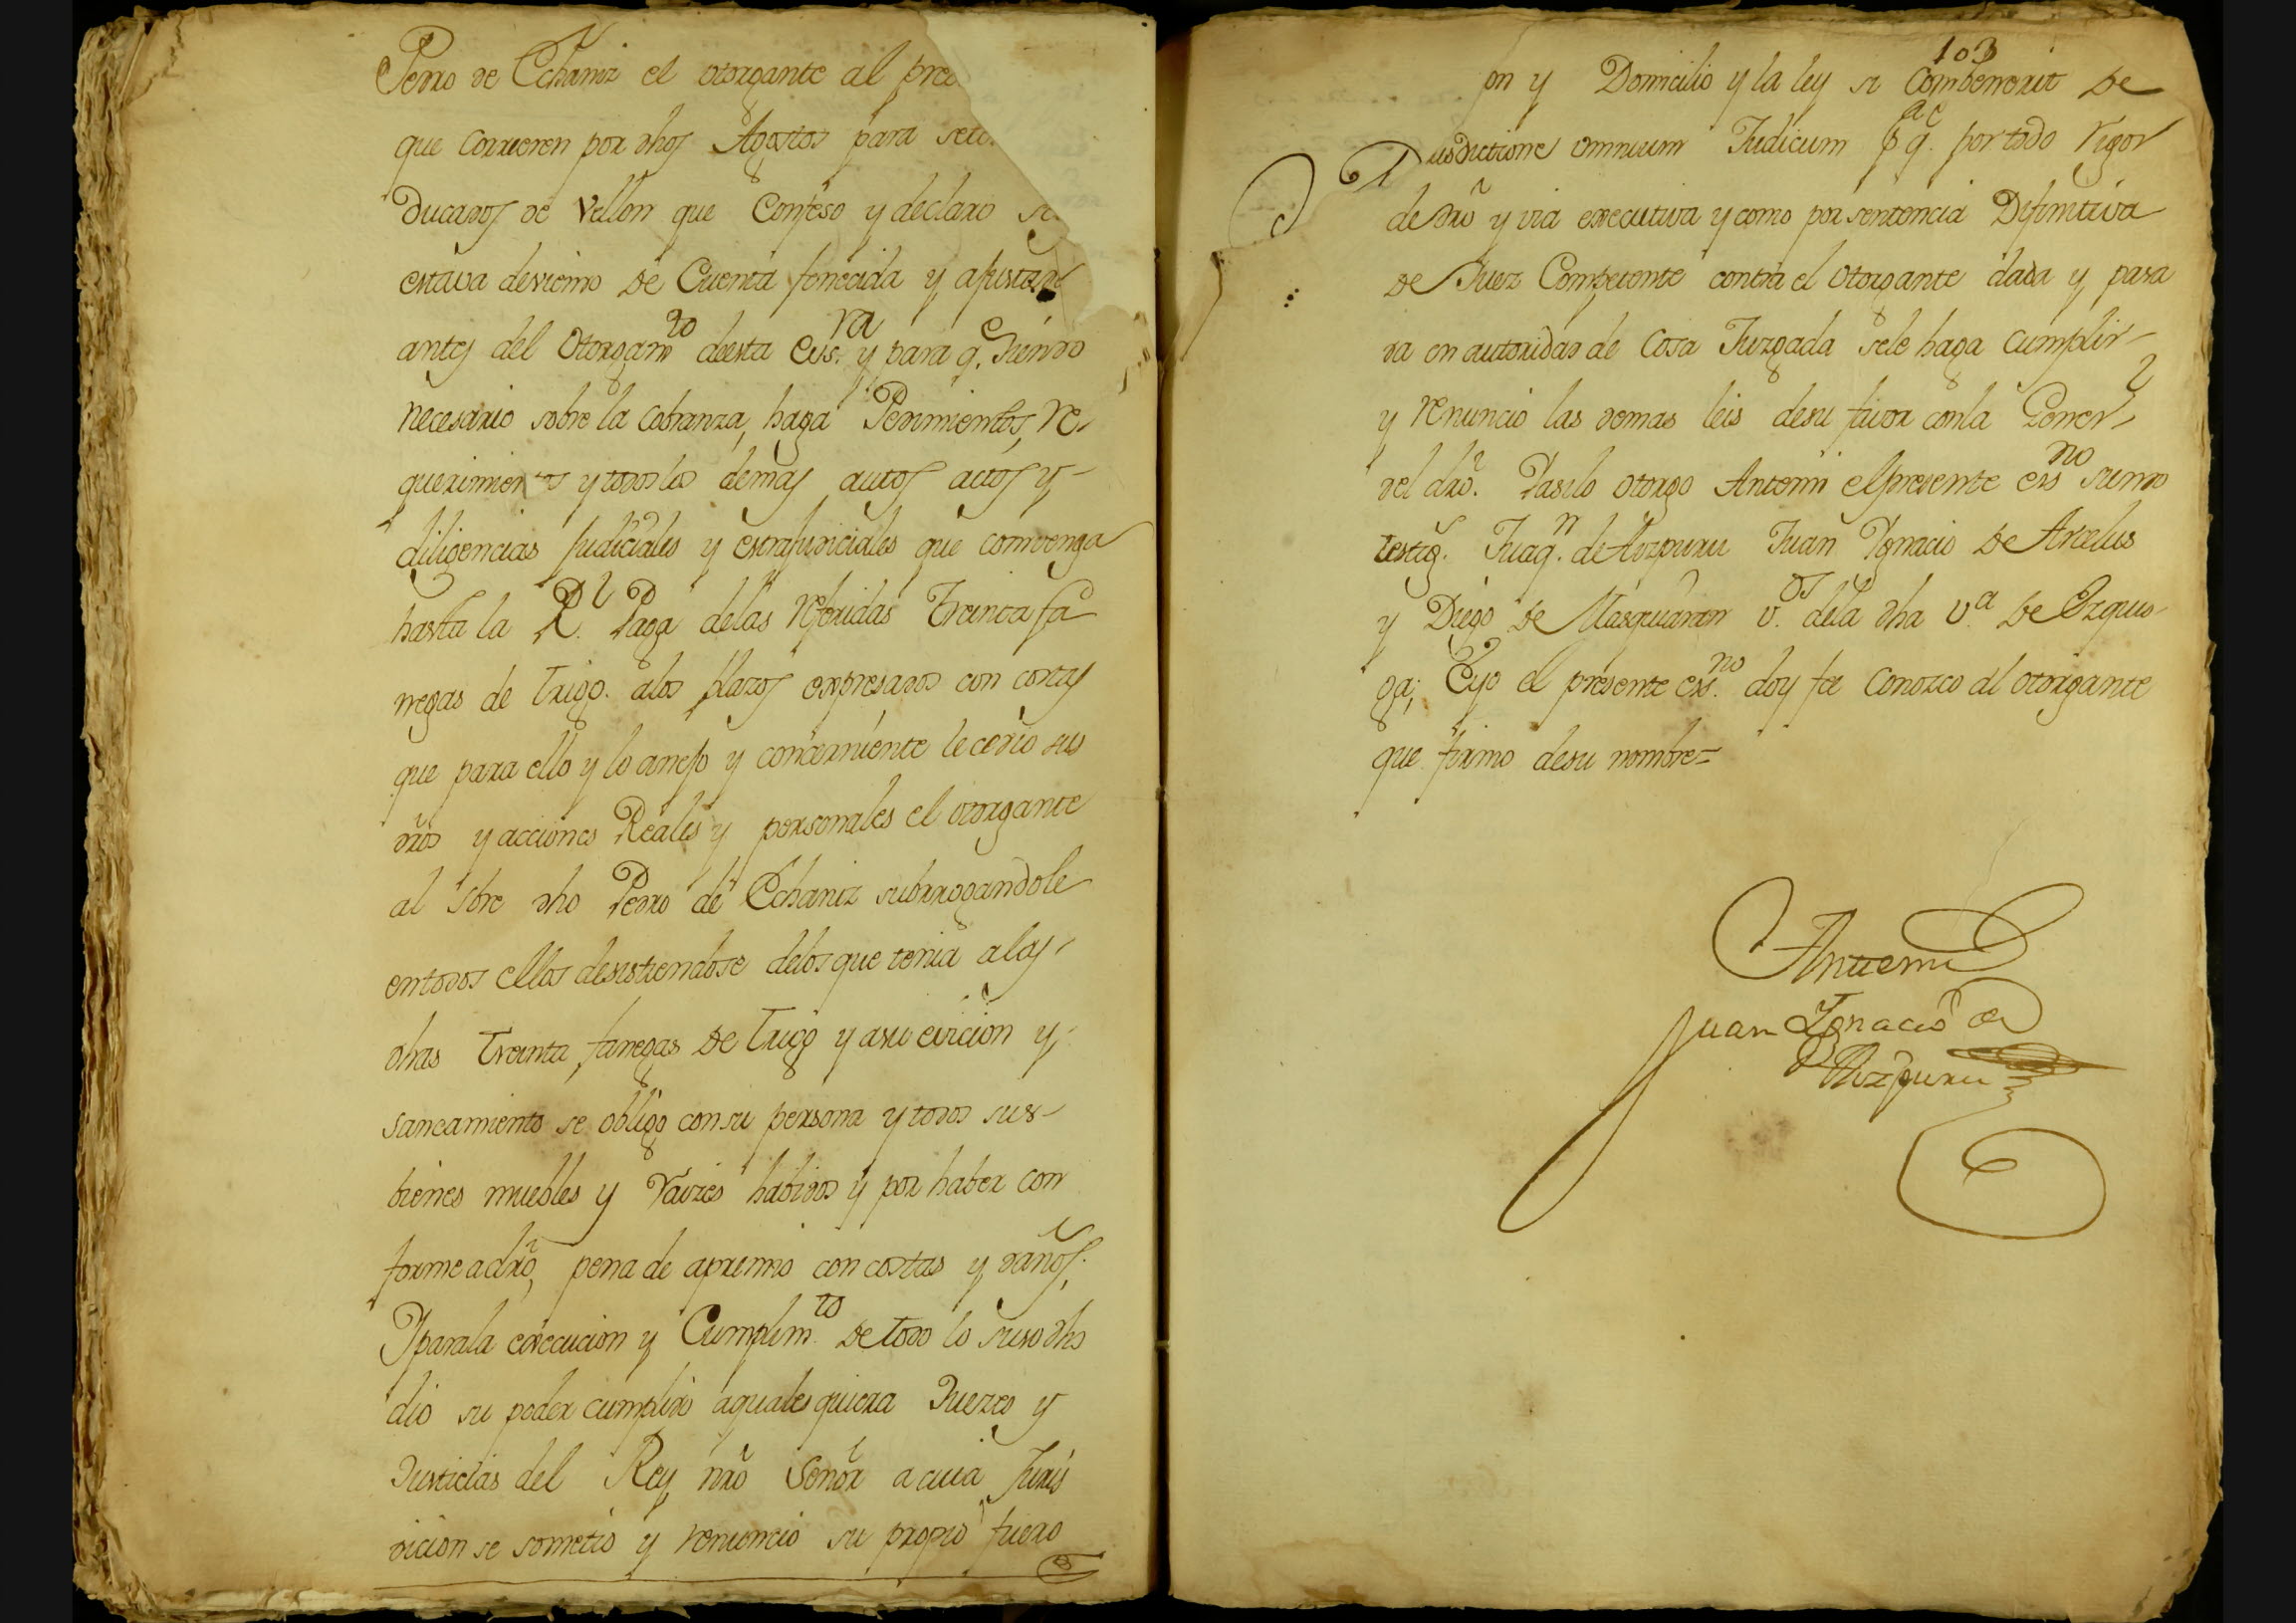 Pedro de Echaniz el otorgante al pre
que Corrieren por dhos Agostos para sete
Ducados de Vellon que Confeso y declaro
estava deviemo de Cuenta fenecida y ajustada
antes del Otorgamto deesta escra y para qe siendo
necesario sobre la cobranza, haga Pedimientos, re-
querimientos y todos los demas autos actos y
diligencias Judiciales y estrajudiciales que convenga
hasta la Rl Paga delas referidas Treinta fa
negas de Trigo. alos plazos expresados con costas
que para ello y lo anejo y concerniente le cedio sus
dros y acciones Reales y personales el otorgante
al sbre dho Pedro de Echaniz subrrogandole
entodos ellos desistiendose delos que tenia alas
dhas Treinta fanegas de Trigo y asu evicion y
saneamiento se obligo con su persona y todos sus
bienes muebles y raizes habidos y por haber con
forme adro, pena de apremio con costas y daños;
Y parala execucion y Cumplimto de todo lo susodho
dio su poder cumplido aqualesquiera Juezes y
Justicias del Rey nro Señor a cuia Juris
dicion se sometio y renuncio su propio fuero
103
on y Domicilio y la ley si Combenerit de
Jusdictione omnium Judicum pa qe por todo rigor
de dro y via executiva y como por sentencia Difinitiva
de Juez Competente contra el otorgante dada y pasa
da en autoridad de Cosa Juzgada sele haga cumplir
y renuncio las demas leis desu favor conla Gener
del dro. Iasilo otorgo Antemi el presente esno siendo
testigs. Juaqn de Aizpuru Juan Ygnacio de Arcelus
y Diego de vos dela dha va de Ezquio
ga; E yo el presente essno doy fee Conozco al otorgante
que firmo desu nombre=
Antemi
Juan Ignacio de
Aizpuru